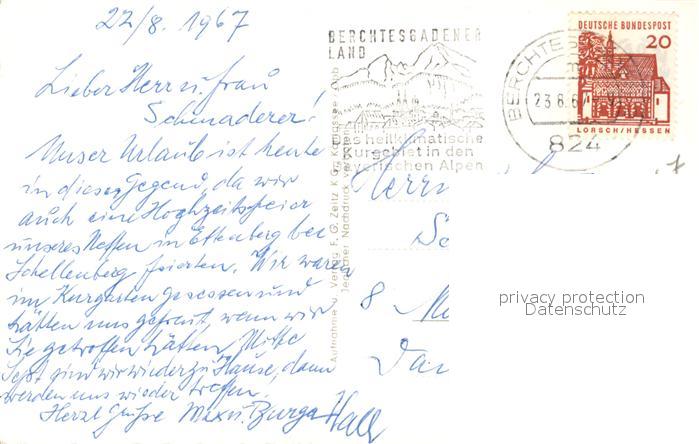 22/8. 1967
Lieber Herr u. Frau
Schmaderer!
Unser Urlaub ist heute
in dieser Gegend, da wir
auch eine Hochzeitsfeier
unseres Neffen in Ettenberg bei
Schellenberg feierten. Wir waren
im Kurgarten gesessen und
hätten uns gefreut, wenn wir
Sie getroffen hätten. Mitte
Sept. sind wir wieder zu Hause, dann
werden uns wieder treffen.
Herzl Grüße Max u. Burga Hall
Aufnahme u. Verlag F. G. Zeitz K.G., Königssee/Obb.
Jeglicher Nachdruck verboten
BERCHTESGADENER
LAND
Das heilklimatische
Kurgebiet in den
Bayerischen Alpen
BERCHTES
23.8.67
824
DEUTSCHE BUNDESPOST
20
LORSCH/HESSEN
Herrn
8 Mü
privacy protection
Datenschutz